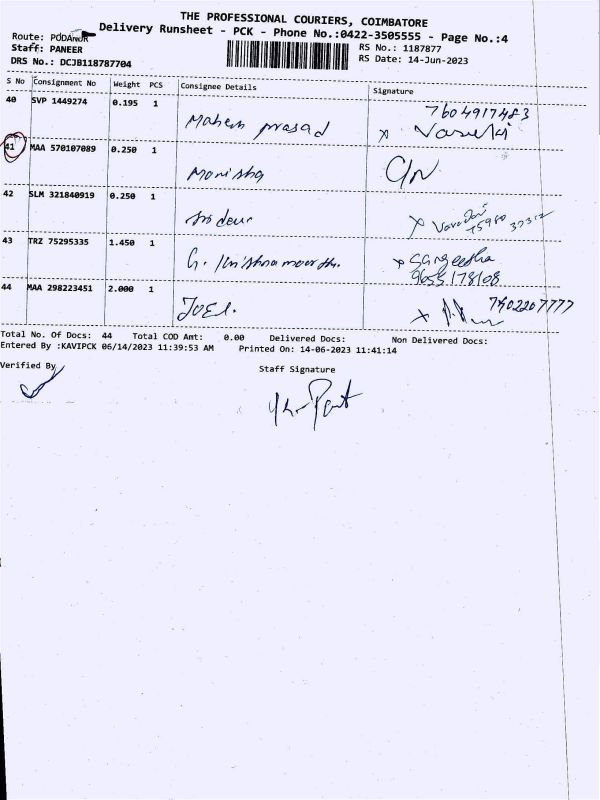 THE PROFESSIONAL COURIERS, COIMBATORE
Delivery Runsheet - PCK - Phone No.:0422-3505555 - Page No.:4
Route: PODANUR
Staff: PANEER
DRS No.: DCJB118787704
RS No.: 1187877
RS Date: 14-Jun-2023
S No Consignment No Weight PCS Consignee Details Signature
40 SVP 1449274 0.195 1 Mahesh prasad 7604917483
x Vasuki
41 MAA 570107089 0.250 1 Monisha
42 SLM 321840919 0.250 1
43 TRZ 75295335 1.450 1 x Sangeetha
9655178108
44 MAA 298223451 2.000 1 JOEL. 7402207777
Total No. Of Docs: 44 Total COD Amt: 0.00 Delivered Docs: Non Delivered Docs:
Entered By :KAVIPCK 06/14/2023 11:39:53 AM Printed On: 14-06-2023 11:41:14
Verified By Staff Signature